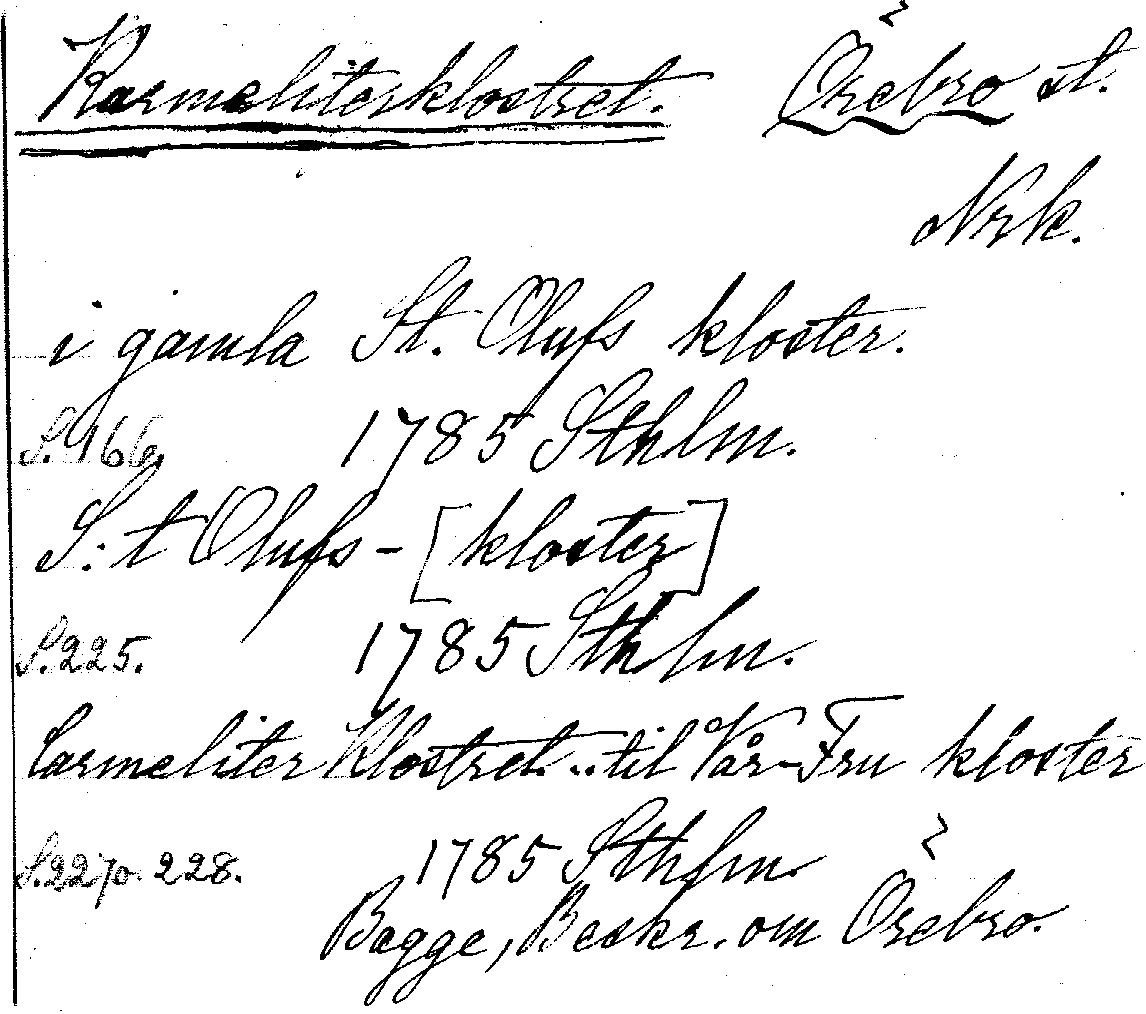 Karmeliterklostret. Örebro st.
Nrk.
i gamla St. Olufs kloster.
S. 166. 1785 Sthlm.
S:t Olufs- [kloster]
S. 225. 1785 Sthlm.
Carmeliter Klostret... til Vår-Fru kloster
S. 227 o. 228. 1785 Sthlm.
Bagge, Beskr. om Örebro.